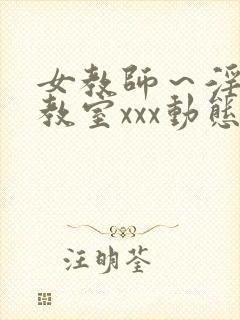 女教師～淫
教室xxx動態
汪明荃